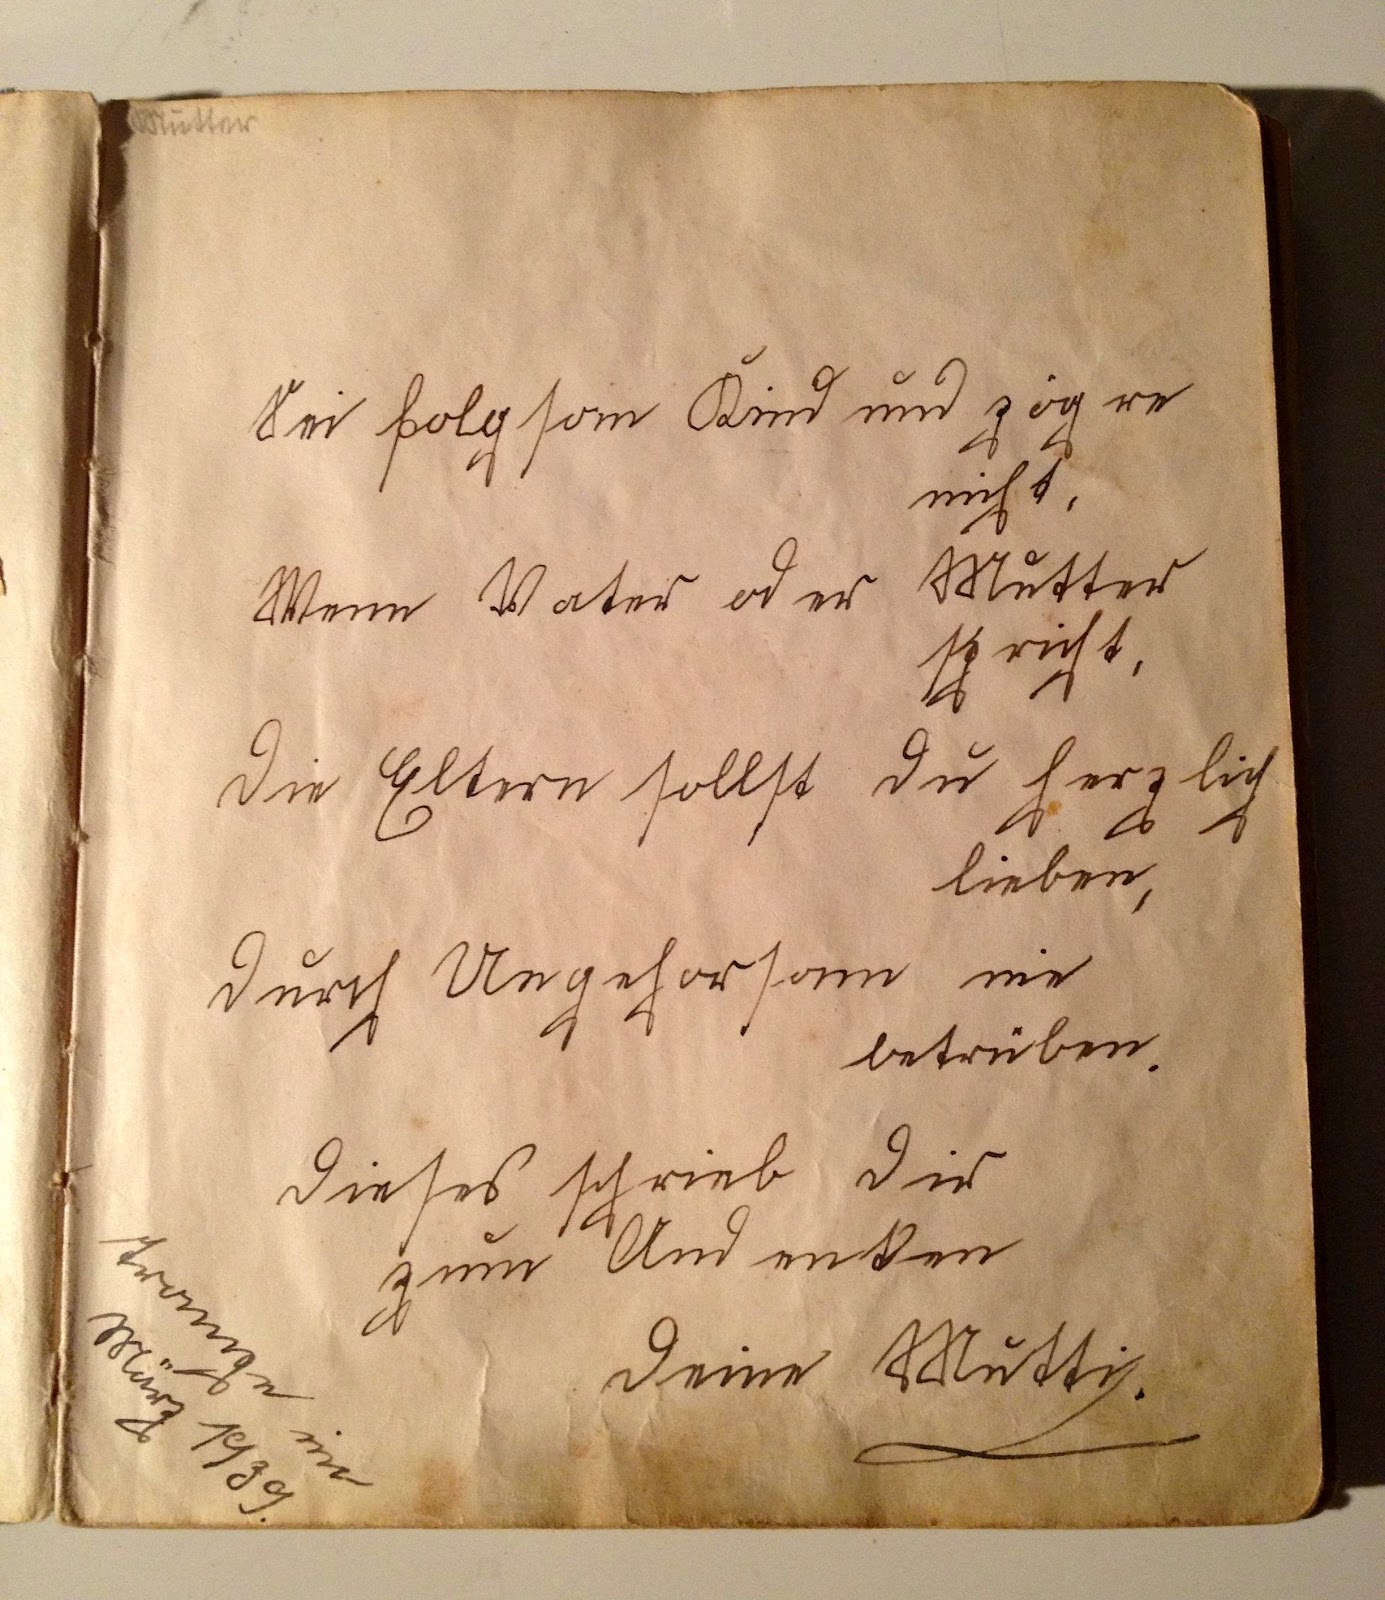 Mutter
Sei folgsam Kind und zögre
nicht,
Wenn Vater oder Mutter
spricht,
Die Eltern sollst du herzlich
lieben,
durch Ungehorsam nie
betrüben.
Dieses schrieb Dir
zum Andenken
Deine Mutti.
im
März 1939.